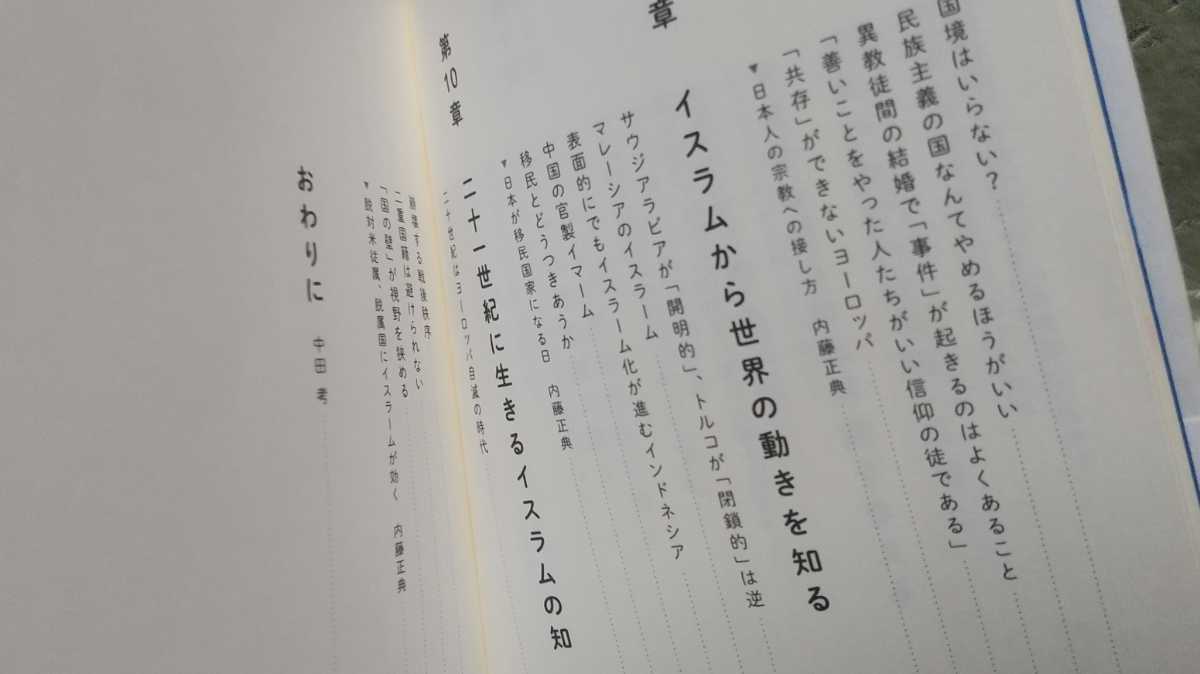 国境はいらない?
民族主義の国なんてやめるほうがいい
異教徒間の結婚で「事件」が起きるのはよくあること
「善いことをやった人たちがいい信仰の徒である」
「共存」ができないヨーロッパ
▼日本人の宗教への接し方 内藤正典
章
イスラムから世界の動きを知る
サウジアラビアが「開明的」、トルコが「閉鎖的」は逆
マレーシアのイスラーム
表面的にでもイスラーム化が進むインドネシア
中国の官製イマーム
移民とどうつきあうか
▼日本が移民国家になる日 内藤正典
第10章
二十一世紀に生きるイスラムの知
二十世紀はヨーロッパ自滅の時代
崩壊する戦後秩序
二重国籍は避けられない
「国の壁」が視野を狭める
▼脱対米従属、脱属国にイスラームが効く 内藤正典
おわりに 中田 考